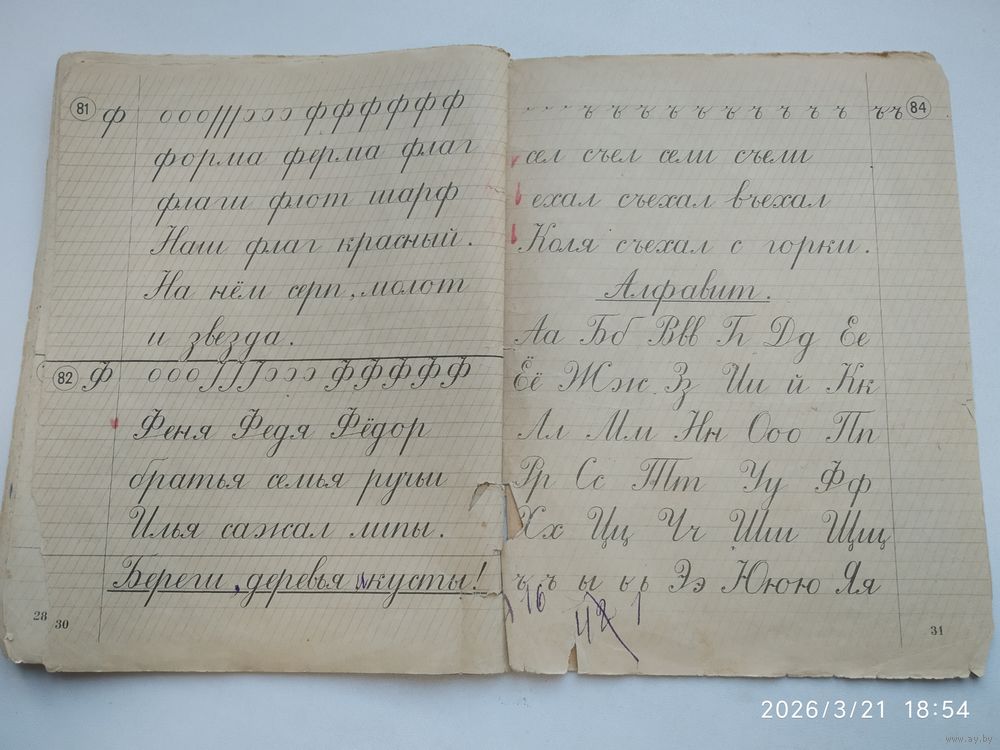 81 ф ооо///эээ ффффффф
форма ферма флаг
флаги флот шарф
Наш флаг красный.
На нём серп, молот
и звезда.
82 Ф ооо эээ ФФФФФ
Феня Федя Фёдор
братья семья ручьи
Илья сажал липы.
Береги, деревья и кусты!
28 30
ъ ъ ъ ъ ъ ъ ъ ъ ъ ъ ъъ 84
сел съел сели съели
ехал съехал въехал
Коля съехал с горки.
Алфавит.
Аа Бб Ввв Гг Дд Ее
Ёё Жж Зз Ии й Кк
Лл Мм Нн Ооо Пп
Рр Сс Тт Уу Фф
Хх Цц Чч Шш Щщ
ъ ъ ы ь ь Ээ Ююю Яя
16 42
31
2026/3/21 18:54
www.ay.by